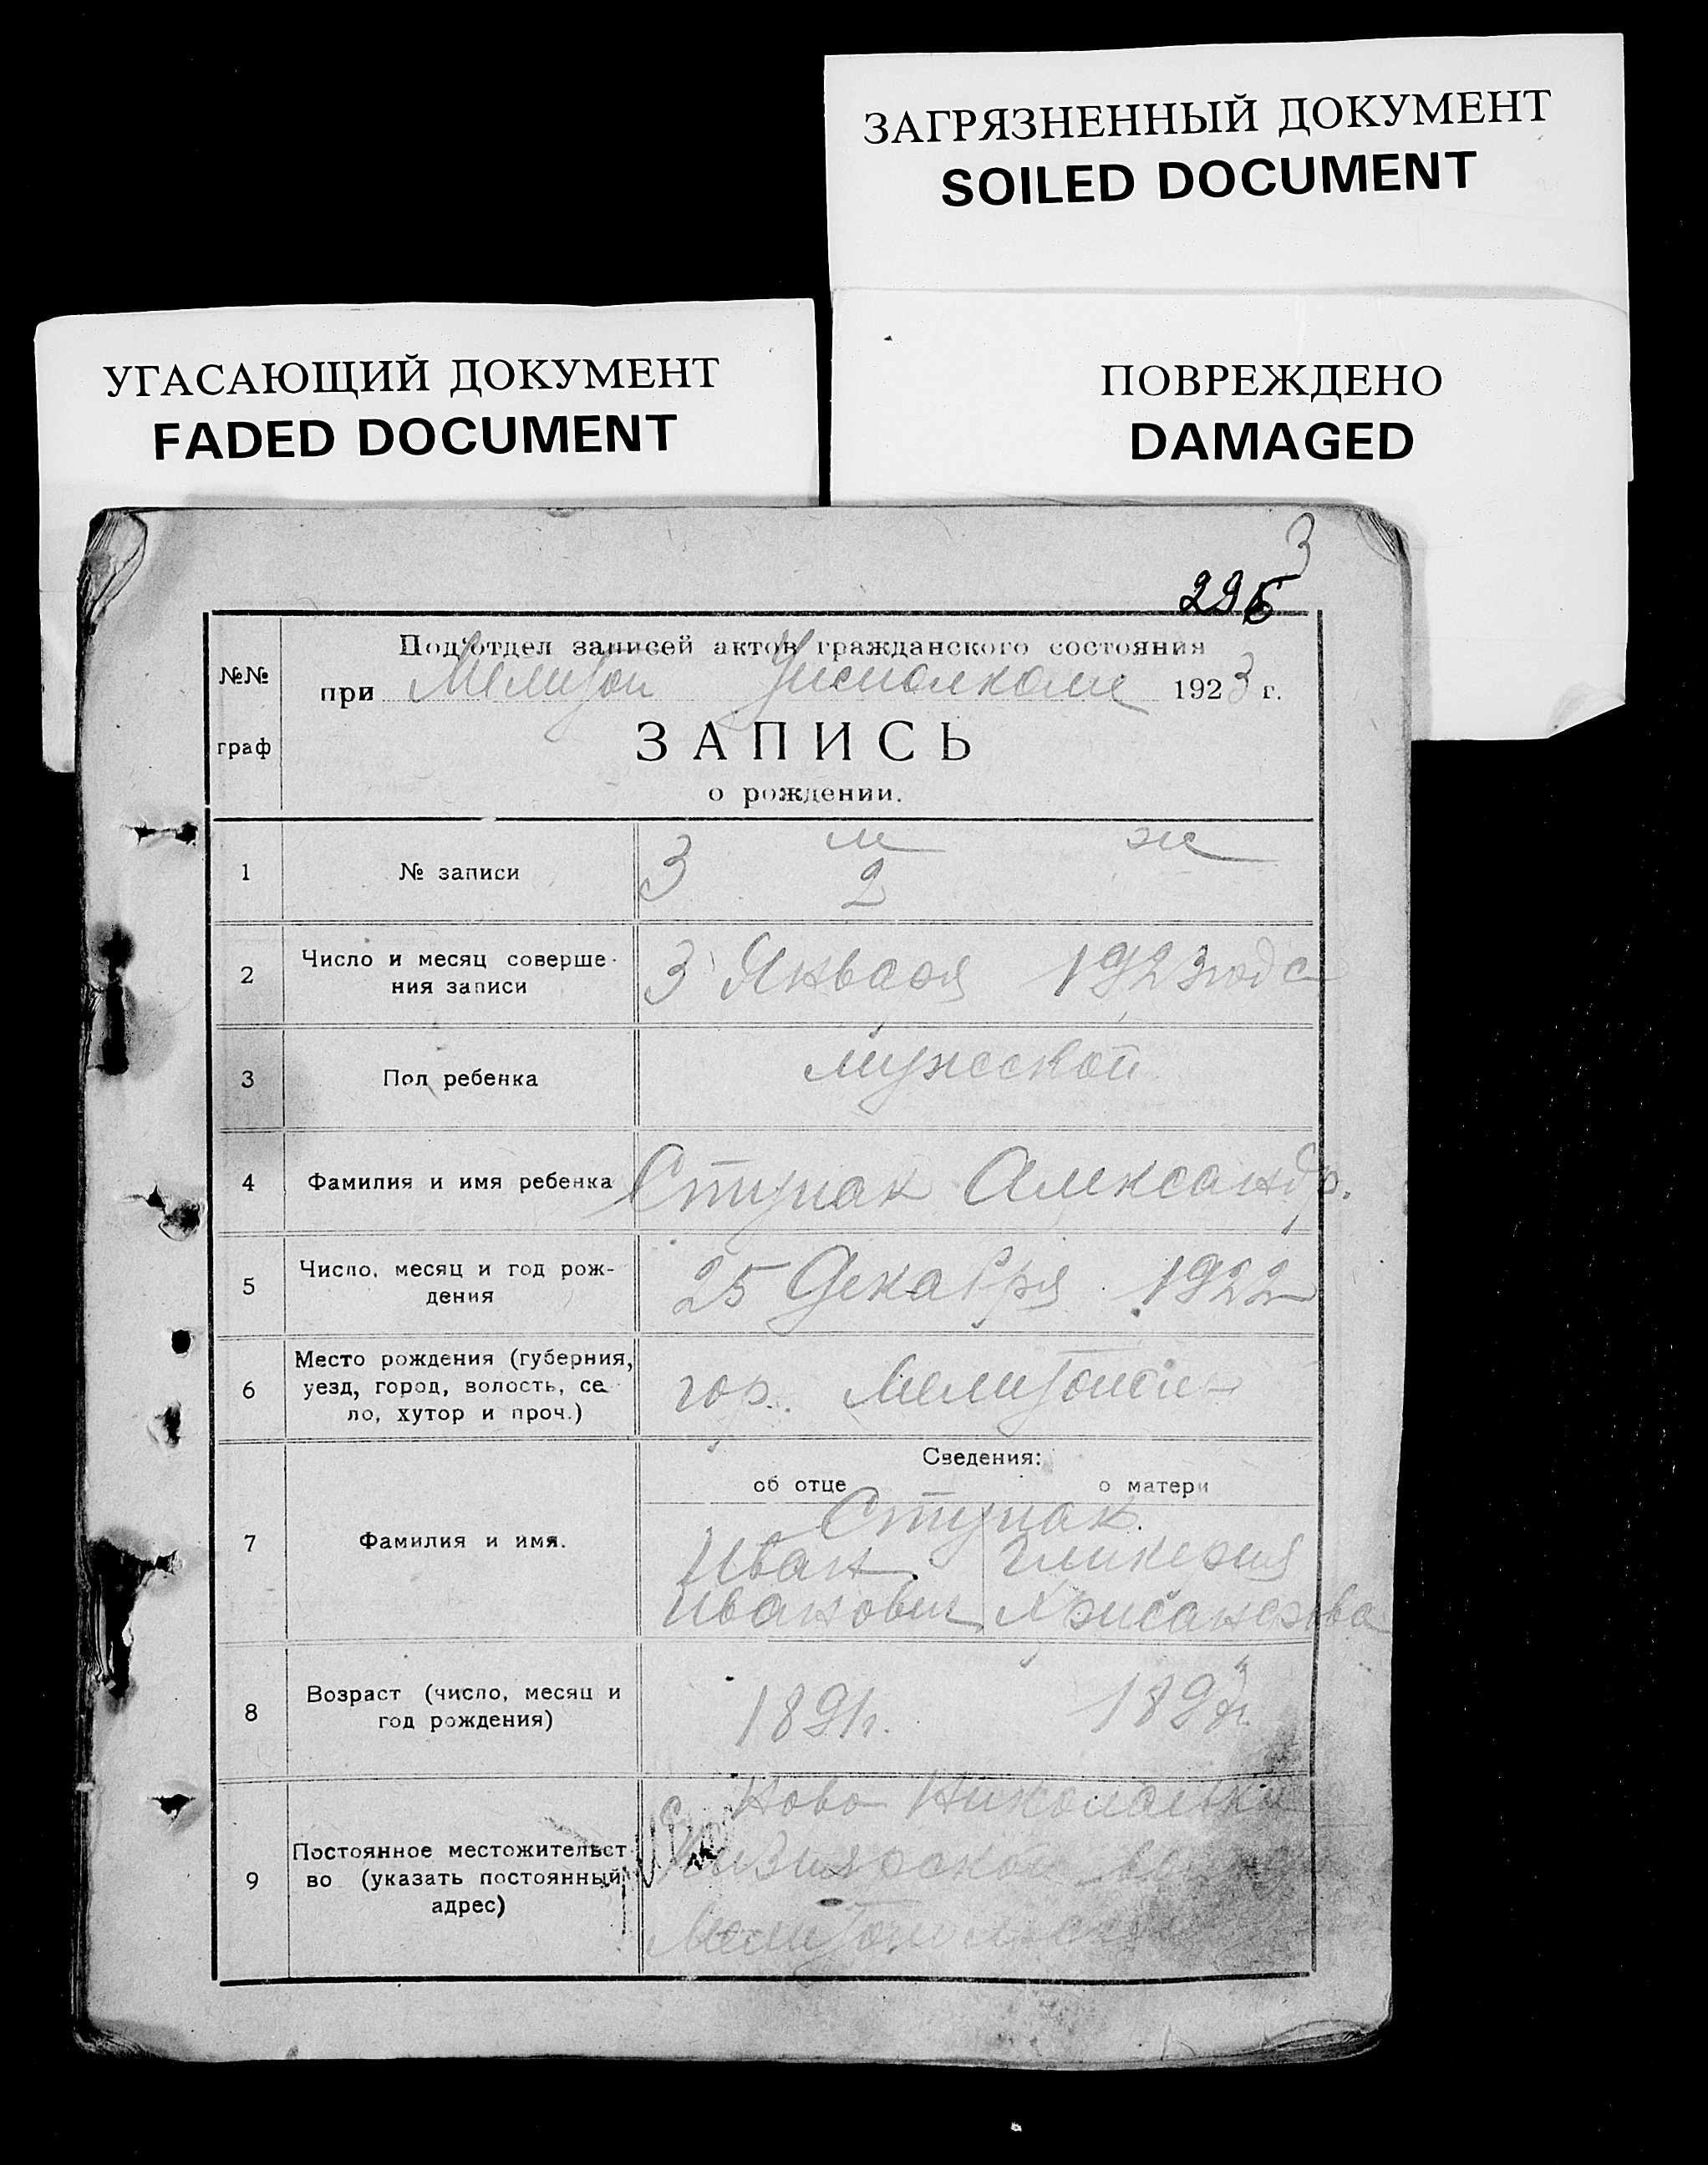 ЗАГРЯЗНЕННЫЙ ДОКУМЕНТ
SOILED DOCUMENT
УГАСАЮЩИЙ ДОКУМЕНТ
FADED DOCUMENT
ПОВРЕЖДЕНО
DAMAGED
3
296
№№ граф
Под'отдел записей актов гражданского состояния
при Мелитоп Уисполкоме 1923 г.
ЗАПИСЬ
о рождении.
м ж
1 № записи 3 2
2 Число и месяц соверше-
ния записи 3 Января 1923 года
3 Пол ребенка мужской
4 Фамилия и имя ребенка Ступак Александр.
5 Число, месяц и год рож-
дения 25 Декабря 1922
6 Место рождения (губерния,
уезд, город, волость, се
ло, хутор и проч.) гор. Мелитополь
Сведения:
об отце о матери
7 Фамилия и имя. Ступак.
Иван Гликерия
Иванович
8 Возраст (число, месяц и
год рождения) 1891г. 1893г.
9 Постоянное местожительст
во (указать постоянный
адрес)
с Ново Николаевка
Мелитопольск